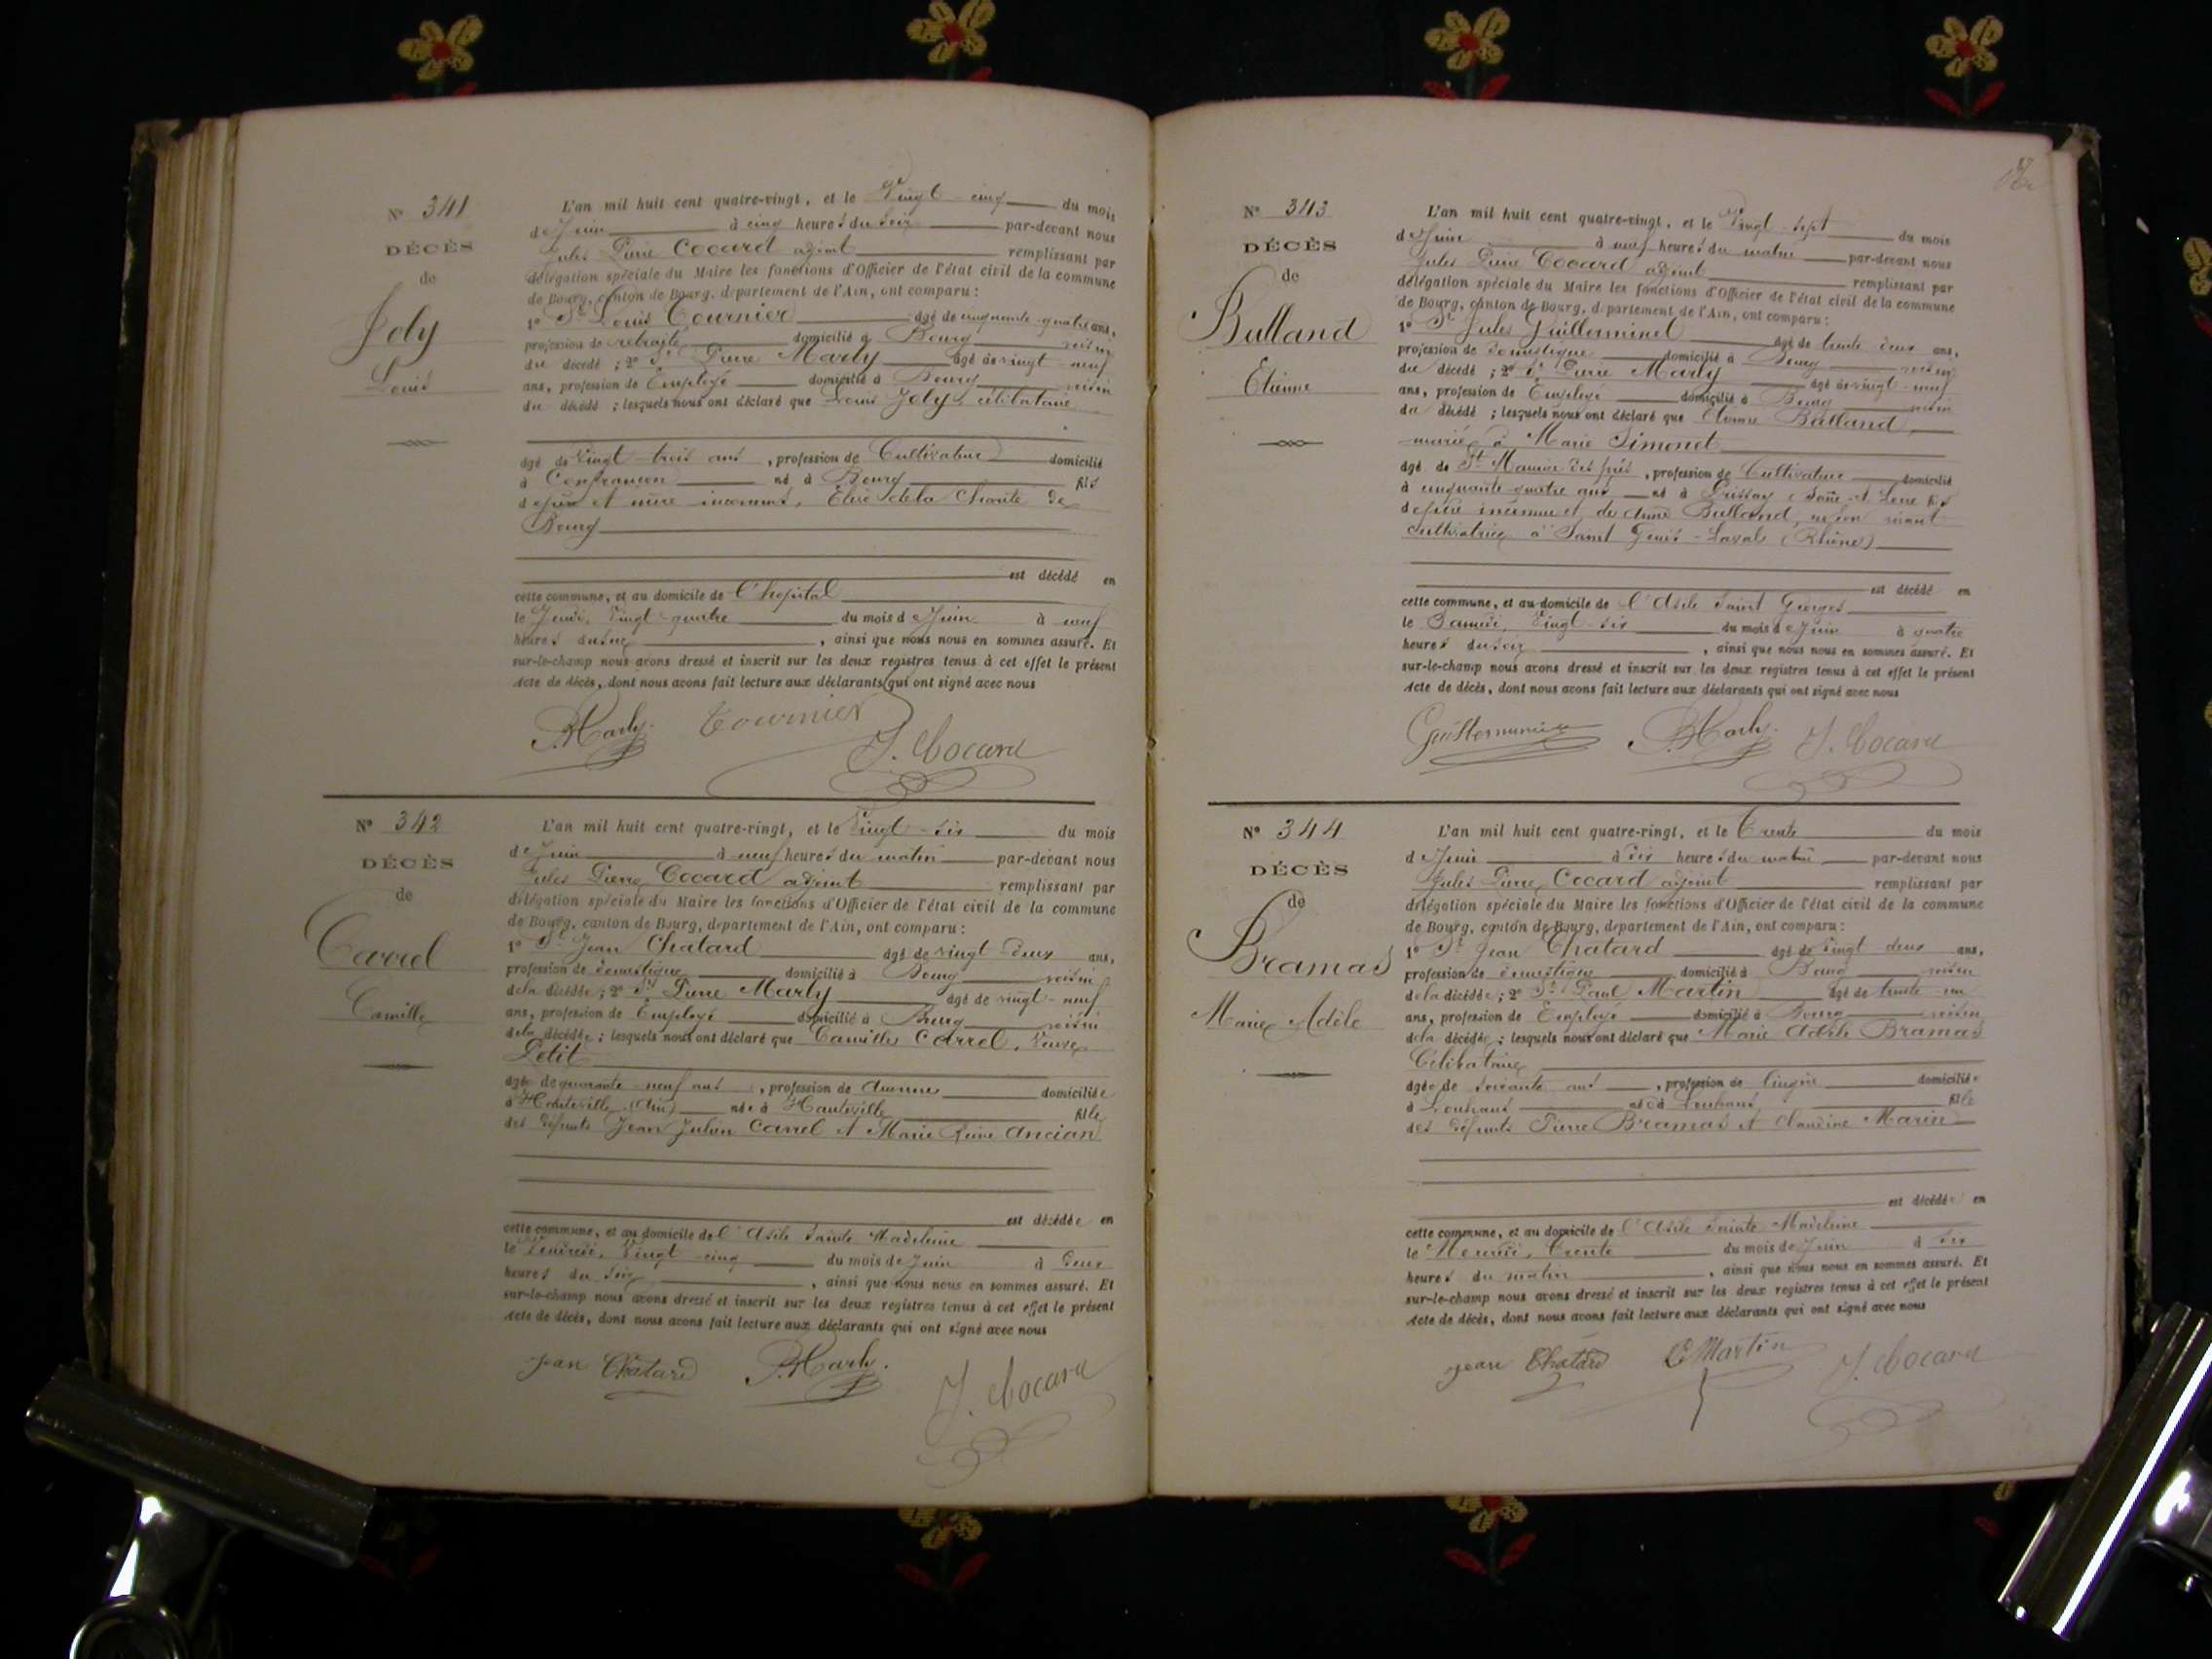 N° 341
DÉCÈS
de
Joly
Louis
L'an mil huit cent quatre-vingt, et le Vingt-cinq du mois
de Juin à cinq heures du soir par-devant nous
Jules Pierre Cocard adjoint remplissant par
délégation spéciale du Maire les fonctions d'Officier de l'état civil de la commune
de Bourg, canton de Bourg, département de l'Ain, ont comparu :
1° Sr Louis Tournier âgé de cinquante-quatre ans,
profession de retraité domicilié à Bourg voisin
du décédé ; 2° Sr Pierre Marly âgé de vingt-neuf
ans, profession de Employé domicilié à Bourg voisin
du décédé ; lesquels nous ont déclaré que Louis Joly, célibataire
âgé de vingt-trois ans, profession de Cultivateur domicilié
à Confrancon né à Bourg fils
de père et mère inconnus, Elève de la Charité de
Bourg
est décédé en
cette commune, et au domicile de l'hopital
le Jeudi, Vingt-quatre du mois de Juin à neuf
heures du soir, ainsi que nous nous en sommes assuré. Et
sur-le-champ nous avons dressé et inscrit sur les deux registres tenus à cet effet le présent
acte de décès, dont nous avons fait lecture aux déclarants qui ont signé avec nous
P. Marly. Tournier
J. Cocard
N° 342
DÉCÈS
de
Carrel
Camille
L'an mil huit cent quatre-vingt, et le Vingt-six du mois
de Juin à neuf heures du matin par-devant nous
Jules Pierre Cocard adjoint remplissant par
délégation spéciale du Maire les fonctions d'Officier de l'état civil de la commune
de Bourg, canton de Bourg, département de l'Ain, ont comparu :
1° Sr Jean Chatard âgé de vingt-deux ans,
profession de domestique domicilié à Bourg voisin
de la décédée ; 2° Sr Pierre Marly âgé de vingt-neuf
ans, profession de Employé domicilié à Bourg voisin
de la décédée ; lesquels nous ont déclaré que Camille Carrel, Veuve
Petit
âgée de quarante-neuf ans, profession de domiciliée
à Hauteville (Ain) née à Hauteville fille
des défunts Jean Julien Carrel et Marie Reine Ancian
est décédée en
cette commune, et au domicile de l'Asile Sainte Madeleine
le Vendredi, Vingt-cinq du mois de Juin à deux
heures du soir, ainsi que nous nous en sommes assuré. Et
sur-le-champ nous avons dressé et inscrit sur les deux registres tenus à cet effet le présent
acte de décès, dont nous avons fait lecture aux déclarants qui ont signé avec nous
Jean Chatard P. Marly.
J. Cocard
N° 343
DÉCÈS
de
Bulland
Etienne
L'an mil huit cent quatre-vingt, et le Vingt-sept du mois
de Juin à neuf heures du matin par-devant nous
Jules Pierre Cocard adjoint remplissant par
délégation spéciale du Maire les fonctions d'Officier de l'état civil de la commune
de Bourg, canton de Bourg, département de l'Ain, ont comparu :
1° Sr Jules Guilleminet âgé de trente-deux ans,
profession de domestique domicilié à Bourg voisin
du décédé ; 2° Sr Pierre Marly âgé de vingt-neuf
ans, profession de Employé domicilié à Bourg voisin
du décédé ; lesquels nous ont déclaré que Etienne Balland
marié à Marie Simonet
âgé de St Maurice des prés, profession de Cultivateur domicilié
à cinquante-quatre ans né à (Saône-et-Loire fils
de père inconnu et de Anne Bulland, vivant
cultivatrice à Saint Genis-Laval (Rhône)
est décédé en
cette commune, et au domicile de l'Asile Saint Georges
le Samedi, Vingt-six du mois de Juin à quatre
heures du soir, ainsi que nous nous en sommes assuré. Et
sur-le-champ nous avons dressé et inscrit sur les deux registres tenus à cet effet le présent
acte de décès, dont nous avons fait lecture aux déclarants qui ont signé avec nous
P. Marly. J. Cocard
N° 344
DÉCÈS
de
Bramas
Marie Adèle
L'an mil huit cent quatre-vingt, et le Trente du mois
de Juin à dix heures du matin par-devant nous
Jules Pierre Cocard adjoint remplissant par
délégation spéciale du Maire les fonctions d'Officier de l'état civil de la commune
de Bourg, canton de Bourg, département de l'Ain, ont comparu :
1° Sr Jean Chatard âgé de vingt-deux ans,
profession de domestique domicilié à Bourg voisin
de la décédée ; 2° Sr Paul Martin âgé de trente-un
ans, profession de Employé domicilié à Bourg voisin
de la décédée ; lesquels nous ont déclaré que Marie Adèle Bramas
Célibataire
âgée de soixante ans, profession de lingère domiciliée
à Louhans née à Louhans fille
des défunts Pierre Bramas et Claudine Marin
est décédée en
cette commune, et au domicile de l'Asile Sainte Madeleine
le Mercredi, trente du mois de Juin à six
heures du matin, ainsi que nous nous en sommes assuré. Et
sur-le-champ nous avons dressé et inscrit sur les deux registres tenus à cet effet le présent
acte de décès, dont nous avons fait lecture aux déclarants qui ont signé avec nous
Jean Chatard P Martin J. Cocard